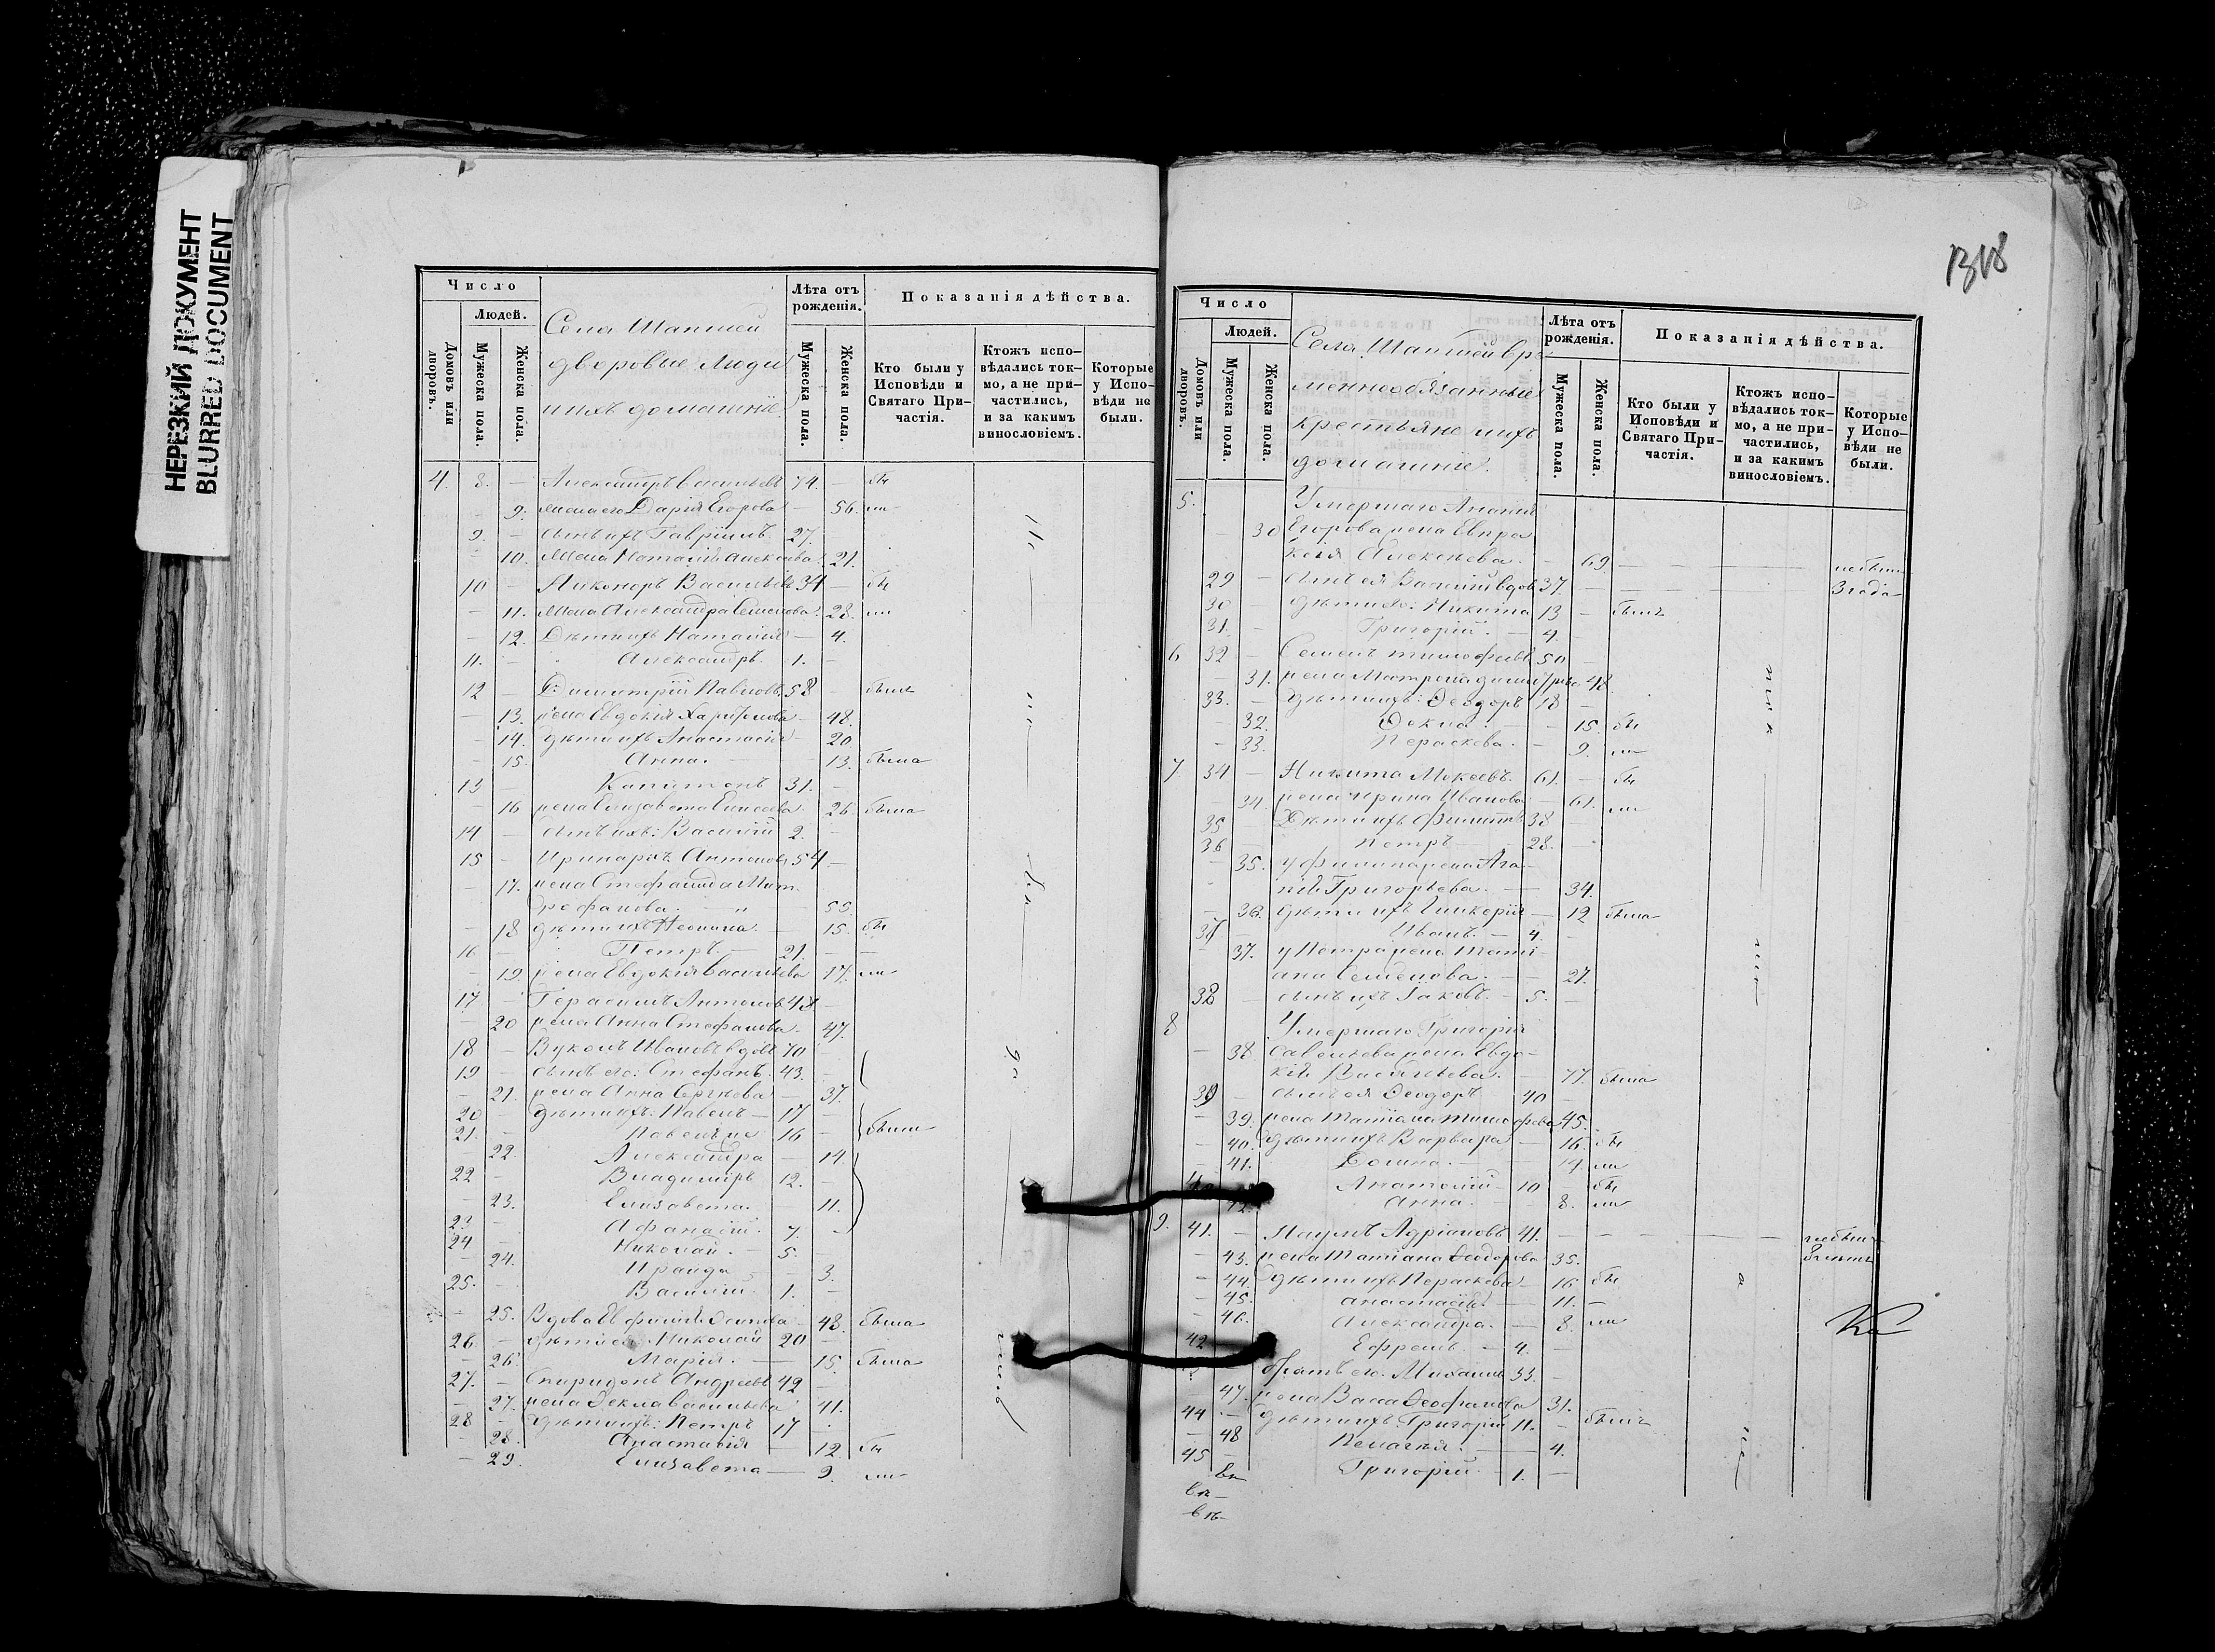 НЕРЕЗКИЙ ДОКУМЕНТ
BLURRED DOCUMENT
Число
Людей.
Домовъ или дворовъ.
Мужеска пола.
Женска пола.
Села Шапшей
дворовые люди
и ихъ домашніе
Лѣта отъ рожденія.
Мужеска пола.
Женска пола.
Показанія дѣйства.
Кто были у Исповѣди и Святаго Причастія.
Ктожъ исповѣдались токмо, а не причастились, и за какимъ винословіемъ.
Которые у Исповѣди не были.
4. 8. — Александръ Васильевъ 74. — бы
— 9. жена его Дарія Егорова — 56. ли
9. — сынъ ихъ Гавріилъ 27. —
— 10. жена Наталія Алексѣева 21.
10 — Никоноръ Васильевъ 34 — бы
— 11. жена Александра Семенова 28. ли
— 12. Дѣти ихъ Наталія — 4.
11. — Александръ. 1. —
12 — Димитрій Павловъ 58 — былъ
— 13. жена Евдокія Харитонова — 48.
— 14. дѣти ихъ Анастасія — 20.
— 15. Анна. — 13. была
13 — Капитонъ 31. —
— 16 жена Елизавета Елисеева 26. была
14 — сынъ ихъ: Василій 2. —
15 — Иринархъ Антоновъ 54 —
— 17. жена Стефанида Мит
рофанова. — 55.
— 18 дѣти ихъ Неонила — 15. бы
16 — Петръ — 21. — —
— 19 жена Евдокія Васильева 17. ли
17 — Герасимъ Антоновъ 48 —
— 20 жена Анна Стефанова. 47.
18 — Вуколъ Ивановъ вдовъ 70
19 — сынъ его: Стефанъ. 43. —
— 21. жена Анна Сергѣева — 37.
20 дѣти ихъ: Павелъ — 17 —
21. — Павелъ же 16 — были
— 22. Александра — 14.
22 — Владиміръ 12. —
— 23. Елизавета. — 11.
23 — Афанасій. 7. —
24 — Николай. — 5. —
— 24. Ираида — 3.
25. — Василій. 1. —
— 25. Вдова Евфимія Осипова — 48. была
26. — дѣти ея Николай 20
— 26. Марія. — 15. была
27. — Спиридонъ Андреевъ 42 —
— 27. жена Ѳекла Васильева 41.
28 — дѣти ихъ: Петръ 17 —
— 28. Анастасія — 12. бы
— 29. Елизавета — 9. ли
1318
Число
Людей.
Домовъ или дворовъ.
Мужеска пола.
Женска пола.
Села Шапшей вре
меннообязанные
крестьяне и ихъ
домашніе.
Лѣта отъ рожденія.
Мужеска пола.
Женска пола.
Показанія дѣйства.
Кто были у Исповѣди и Святаго Причастія.
Ктожъ исповѣдались токмо, а не причастились, и за какимъ винословіемъ.
Которые у Исповѣди не были.
5. Умершаго Ананія
— 30 Егорова жена Евпра
ксія Алексѣева. — 69. — — не были
29 — сынъ ея Василій вдовъ 37. — — — 3 года
30 — дѣти его: Никита 13 — былъ
31. — Григорій. — 4. —
6 32 — Семенъ Тимофеевъ 50 —
— 31. жена Матрона Димитріева 48.
33. — дѣти ихъ: Ѳеодоръ 18 —
— 32. Ѳекла — 15. бы
— 33. Параскева. — 9. ли
7. 34 — Никита Мокеевъ. 61. — бы
— 34. жена Ирина Иванова — 61. ли
35 — Дѣти ихъ Филиппъ 38 —
36 Петръ — 28. —
— 35. у Филиппа жена Ага
пія Григорьева. — 34.
— 36. дѣти ихъ Гликерія — 12 была
37 Иванъ. — 4. —
— 37. у Петра жена Тати
ана Семенова. — 27.
38 — сынъ ихъ Іаковъ. — 5. —
8 Умершаго Григорія
— 38 Савельева жена Евдо
кія Васильева. — 77. была
39 — сынъ ея Ѳеодоръ 40 —
— 39. жена Татіана Тимофеева 45.
— 40. дѣти ихъ Варвара — 16. бы
— 41. Домна. — 14 ли
40 — Анатолій — 10 — бы
42. Анна. — 8. ли
9. 41. — Наумъ Адріановъ 41. — — — не были
— 43. жена Татіана Ѳеодорова 35. 8 лѣтъ
— 44. дѣти ихъ Параскева — 16 бы
— 45. Анастасія. — 11. —
— 46. Александра. — 8. ли
42 Ефремъ — 4. —
братъ его. Михаилъ 33. —
— 47. жена Васса Ѳеофанова 31.
44 — дѣти ихъ Григорій 11. — былъ
— 48 Пелагія. — 4.
45 — Григорій — 1. —